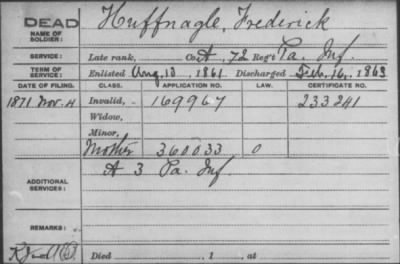 DEAD
NAME OF SOLDIER: Huffnagle, Frederick
SERVICE: Late rank, Co. A, 72 Reg't Pa. Inf.
TERM OF SERVICE: Enlisted Aug. 10, 1861, Discharged Feb. 16, 1863
DATE OF FILING. CLASS. APPLICATION NO. LAW. CERTIFICATE NO.
1871 Nov. 4 Invalid, 169967 233241
Widow,
Minor,
Mother 360033 0
ADDITIONAL SERVICES: A 3 Pa. Inf.
REMARKS:
Died , 1 , at